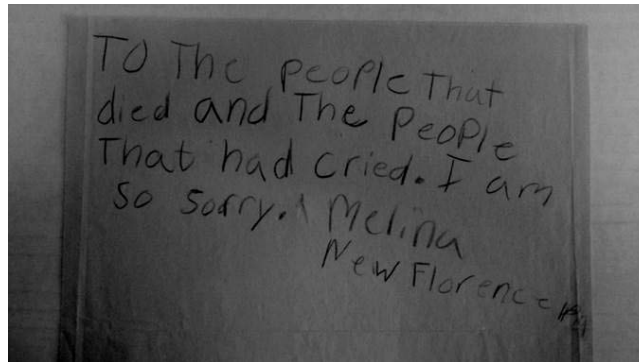 TO The people That
died and The People
That had cried. I am
so sorry. Melina
New Florence